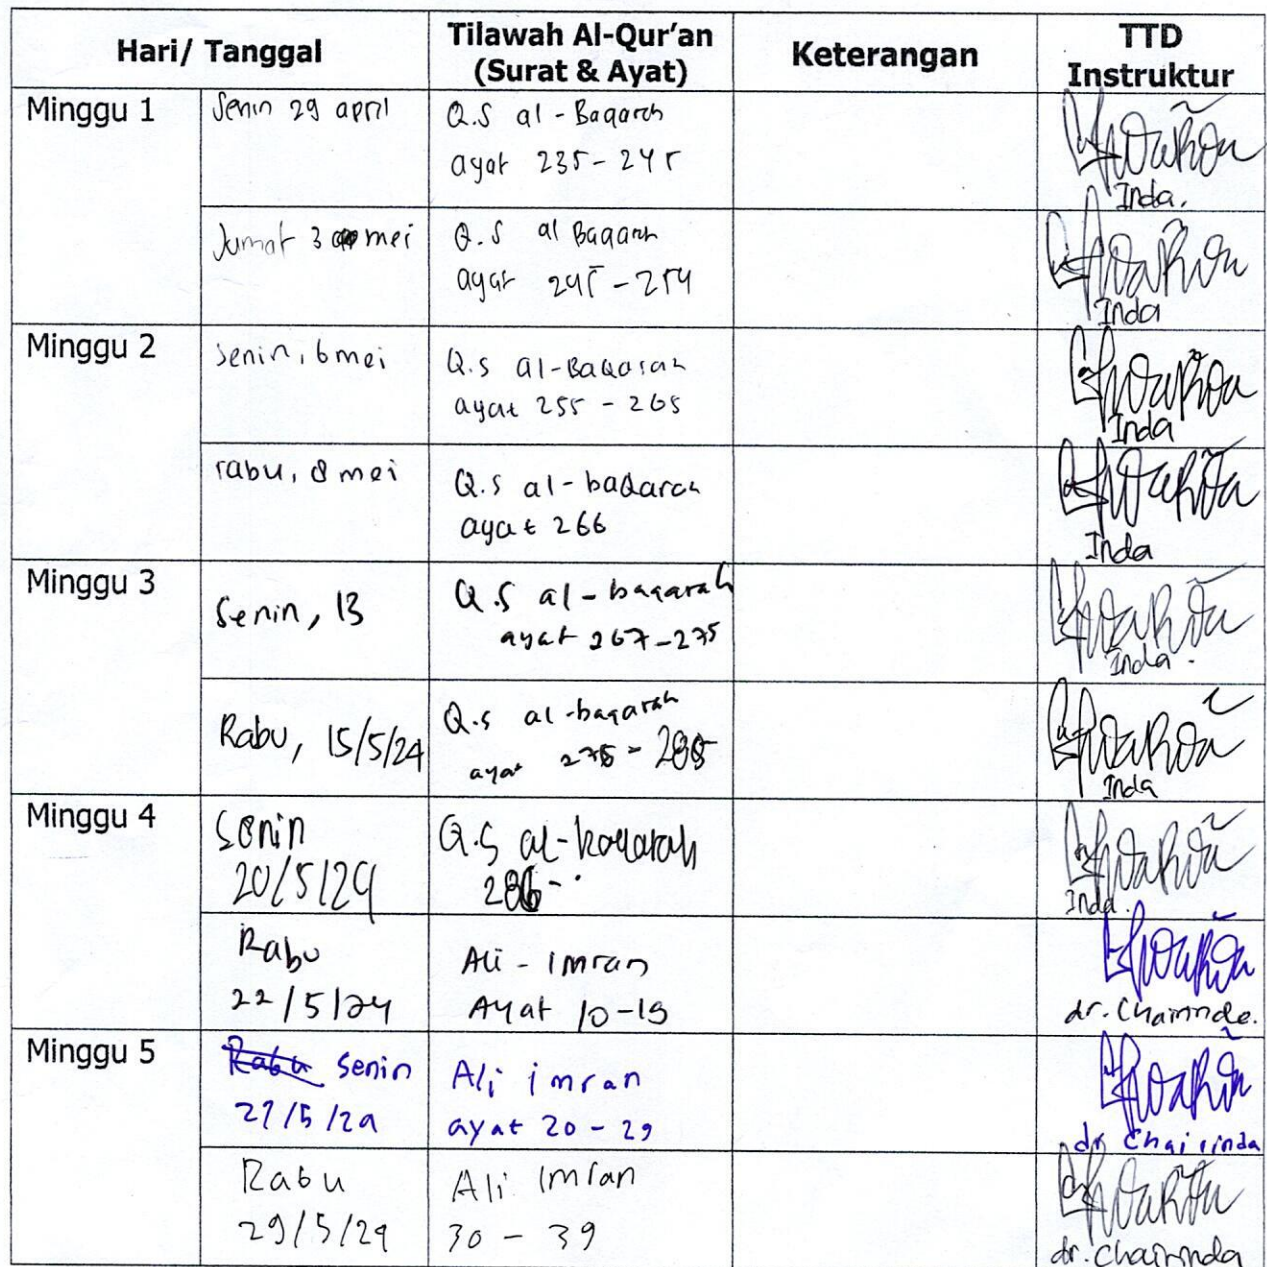 Hari/ Tanggal
Tilawah Al-Qur'an
(Surat & Ayat)
Keterangan
TTD
Instruktur
Minggu 1
Senin 29 april
Q.S al-Baqarah
ayat 235-245
Inda.
Jumat 3 mei
Q.S al Baqarah
ayat 245-254
Inda
Minggu 2
Senin, 6 mei
Q.S al-Baqarah
ayat 255 - 265
Inda
rabu, 8 mei
Q.S al-baqarah
ayat 266
Inda
Minggu 3
Senin, 13
Q.S al-baqarah
ayat 267-275
Inda.
Rabu, 15/5/24
Q.S al-baqarah
ayat 276 - 285
Inda
Minggu 4
Senin
20/5/24
Q.S al-baqarah
286-
Inda.
Rabu
22/5/24
Ali-Imran
Ayat 10-19
dr. Chairinda.
Minggu 5
Rabu senin
27/5/24
Ali imran
ayat 20-29
dr Chairinda
Rabu
29/5/24
Ali Imran
30 - 39
dr. Chairinda